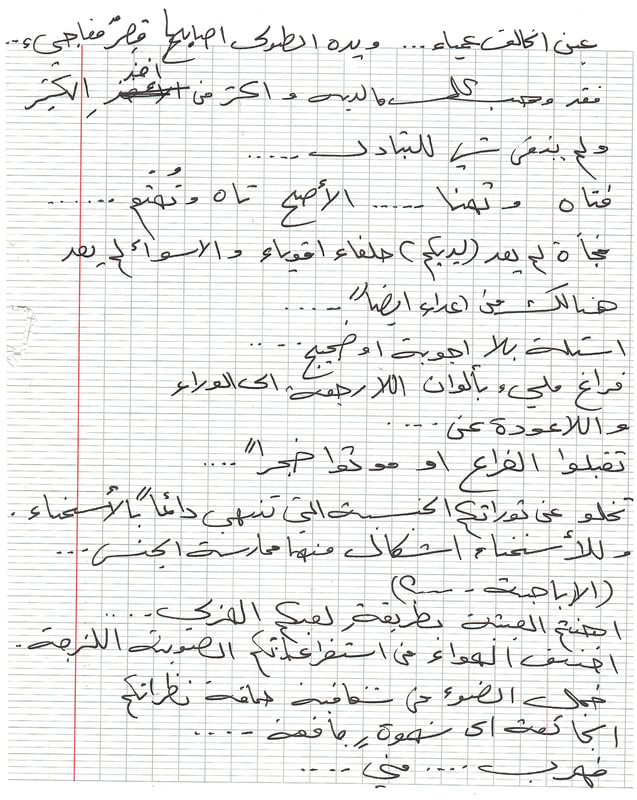 عين الخالق عمياء ... ويده الطولى اصابها قصرٌ مفاجيء ..
فقد وهب كل ما لديه و اكثر من أخذ الكثير
ولم ينبقى شيء للتبادل .....
فتاه وتهنا ..... الأصح تاه وتُهتم ......
فجأة لم يعد (لديكم) حلفاء اقوياء والاسوأ لم يعد
هنالك من اعداء ايضاً .....
اسئلة بلا اجوبة او ضجيج ....
فراغ مليء بألوان اللارجعة الى الوراء
و اللاعودة عن ....
تقبلوا الفراغ او موتوا ضجراً ....
تخلو عن ثوراتكم الجنسية التي تنتهي دائماً بالأستمناء .
وللأستمناء اشكال منها ممارسة الجنس ...
(الاباحية ..... ؟)
العيشة بطريقة لعبكم الهزلي .....
الهواء من استفراغاتكم الصوتية اللزجة .
خجل الضوء من شفافية حماقة نظراتكم
الجائعة الى شهوةٍ جافة .....
فهرب .... مني ....